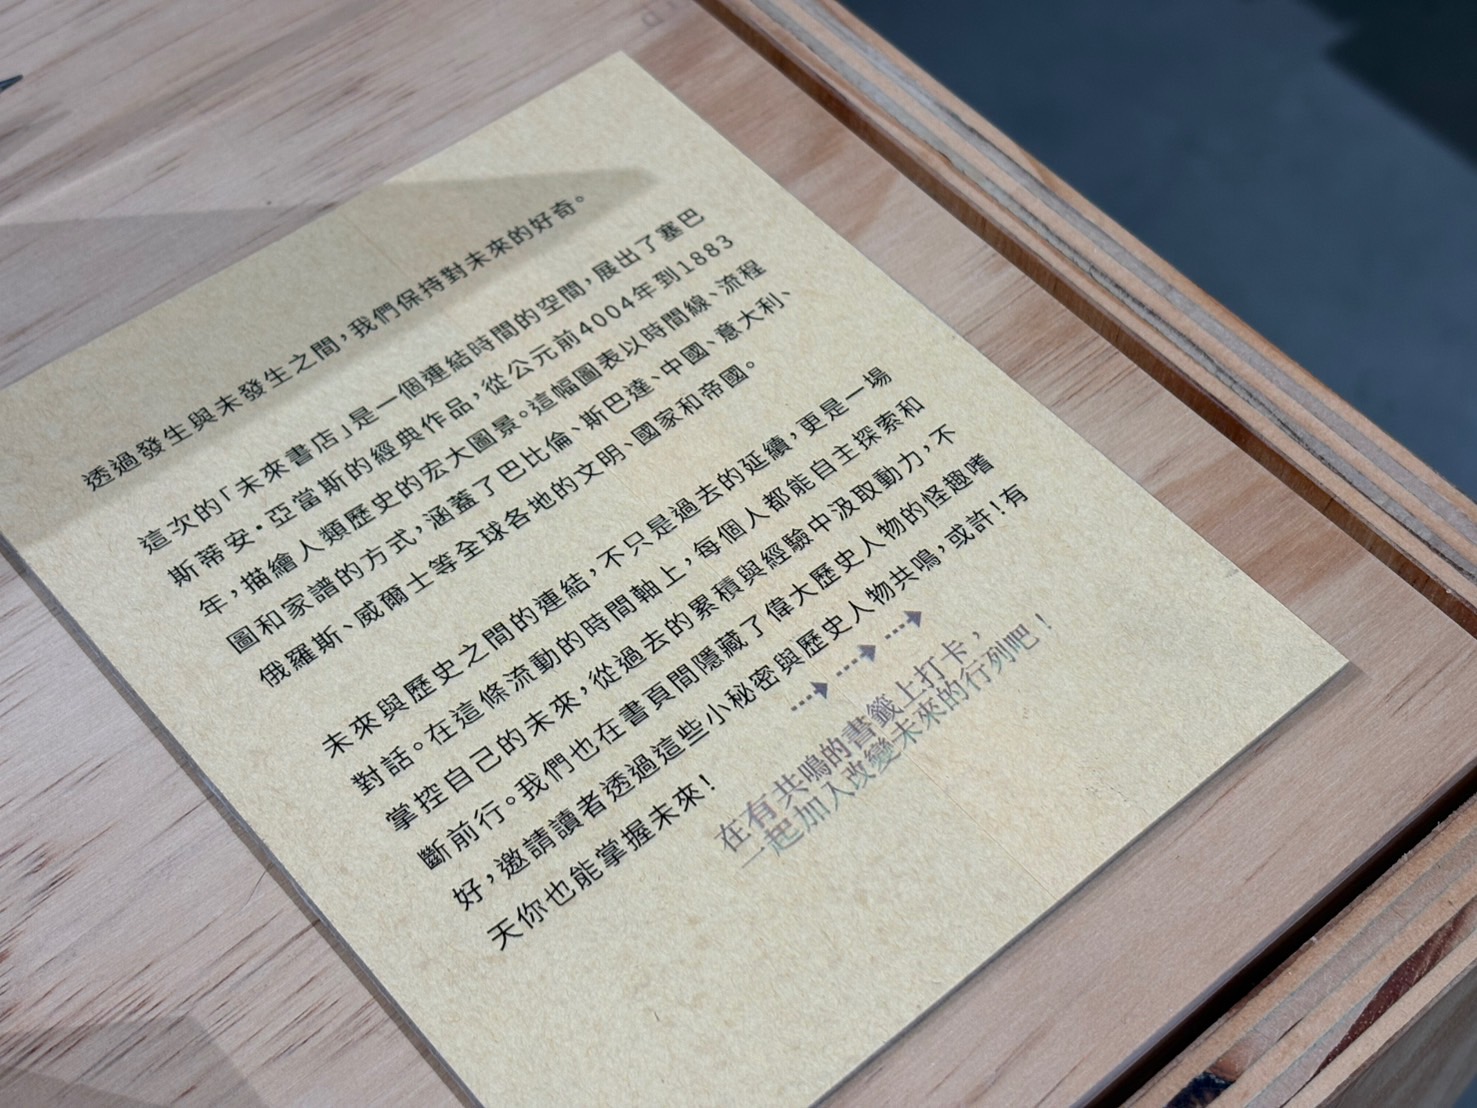 透過發生與未發生之間，我們保持對未來的好奇。
這次的「未來書店」是一個連結時間的空間，展出了塞巴
斯蒂安・亞當斯的經典作品，從公元前4004年到1883
年，描繪人類歷史的宏大圖景。這幅圖表以時間線、流程
圖和家譜的方式，涵蓋了巴比倫、斯巴達、中國、意大利、
俄羅斯、威爾士等全球各地的文明、國家和帝國。
未來與歷史之間的連結，不只是過去的延續，更是一場
對話。在這條流動的時間軸上，每個人都能自主探索和
掌控自己的未來，從過去的累積與經驗中汲取動力，不
斷前行。我們也在書頁間隱藏了偉大歷史人物的怪趣嗜
好，邀請讀者透過這些小秘密與歷史人物共鳴，或許！有
天你也能掌握未來！
在有共鳴的書籤上打卡，
一起加入改變未來的行列吧！